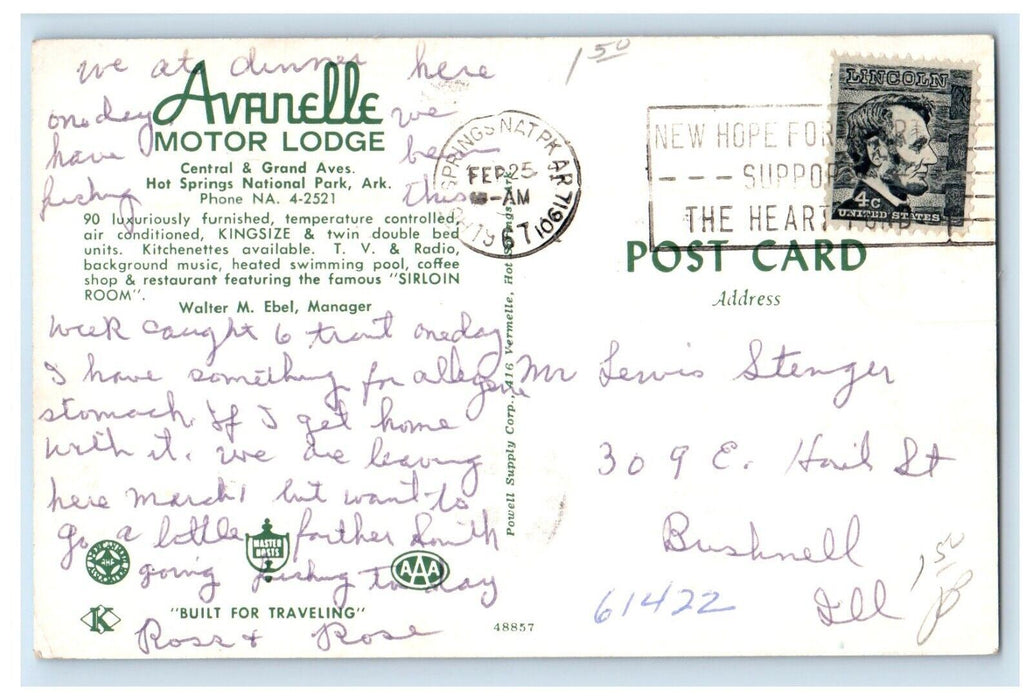 we at dinner here
one day we
have been
fishing this
Avanelle
MOTOR LODGE
Central & Grand Aves.
Hot Springs National Park, Ark.
Phone NA. 4-2521
90 luxuriously furnished, temperature controlled,
air conditioned, KINGSIZE & twin double bed
units. Kitchenettes available. T. V. & Radio,
background music, heated swimming pool, coffee
shop & restaurant featuring the famous "SIRLOIN
ROOM".
Walter M. Ebel, Manager
week caught 6 trout one day
I have something for
stomach. If I get home
with it. we are leaving
here March 1 but want to
go a little farther South
going fishing to day
Ross & Rose
MASTER
HOSTS
AAA
K
"BUILT FOR TRAVELING"
48857
Powell Supply Corp., 416 Vermelle, Hot Springs, Ark.
1 50
SPRINGS NAT PK AR 71901
FEB 25
AM
67
NEW HOPE FOR
SUPPORT
THE HEART FUND
LINCOLN
4c
UNITED STATES
POST CARD
Address
Mr Lewis Stenger
309 E. Hail St
Bushnell
Ill
61422
1 50